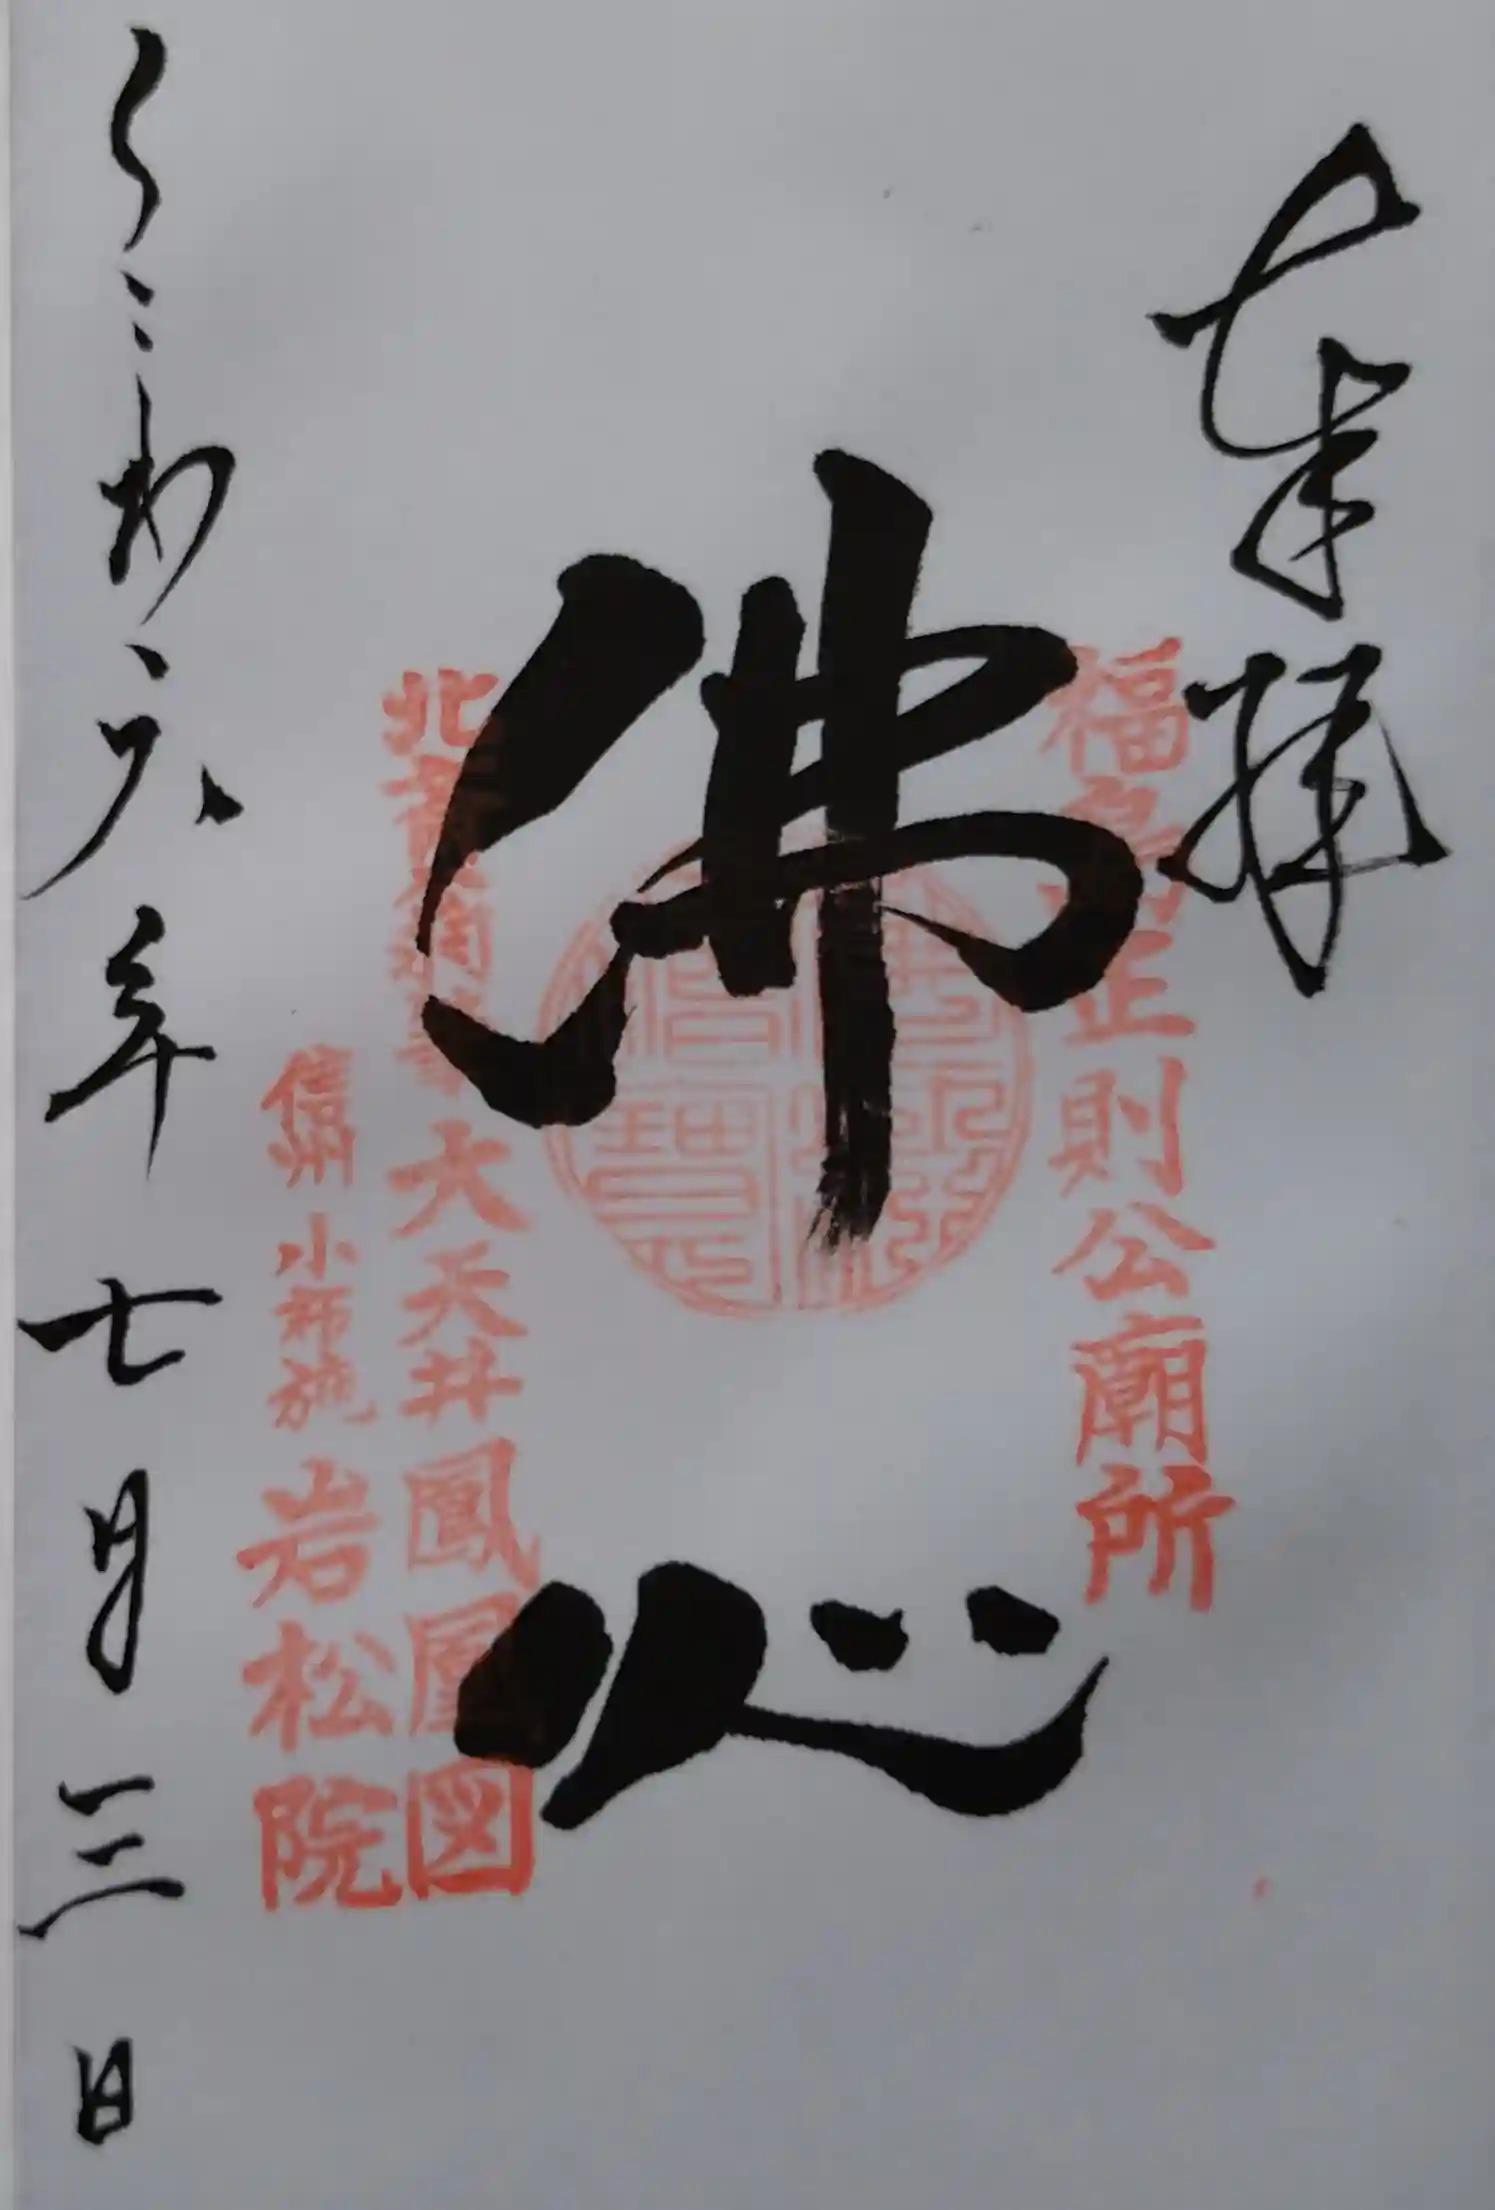 奉拝
福島正則公廟所
佛心
北斎八方睨み大天井鳳凰図
信州小布施岩松院
令和六年七月三日